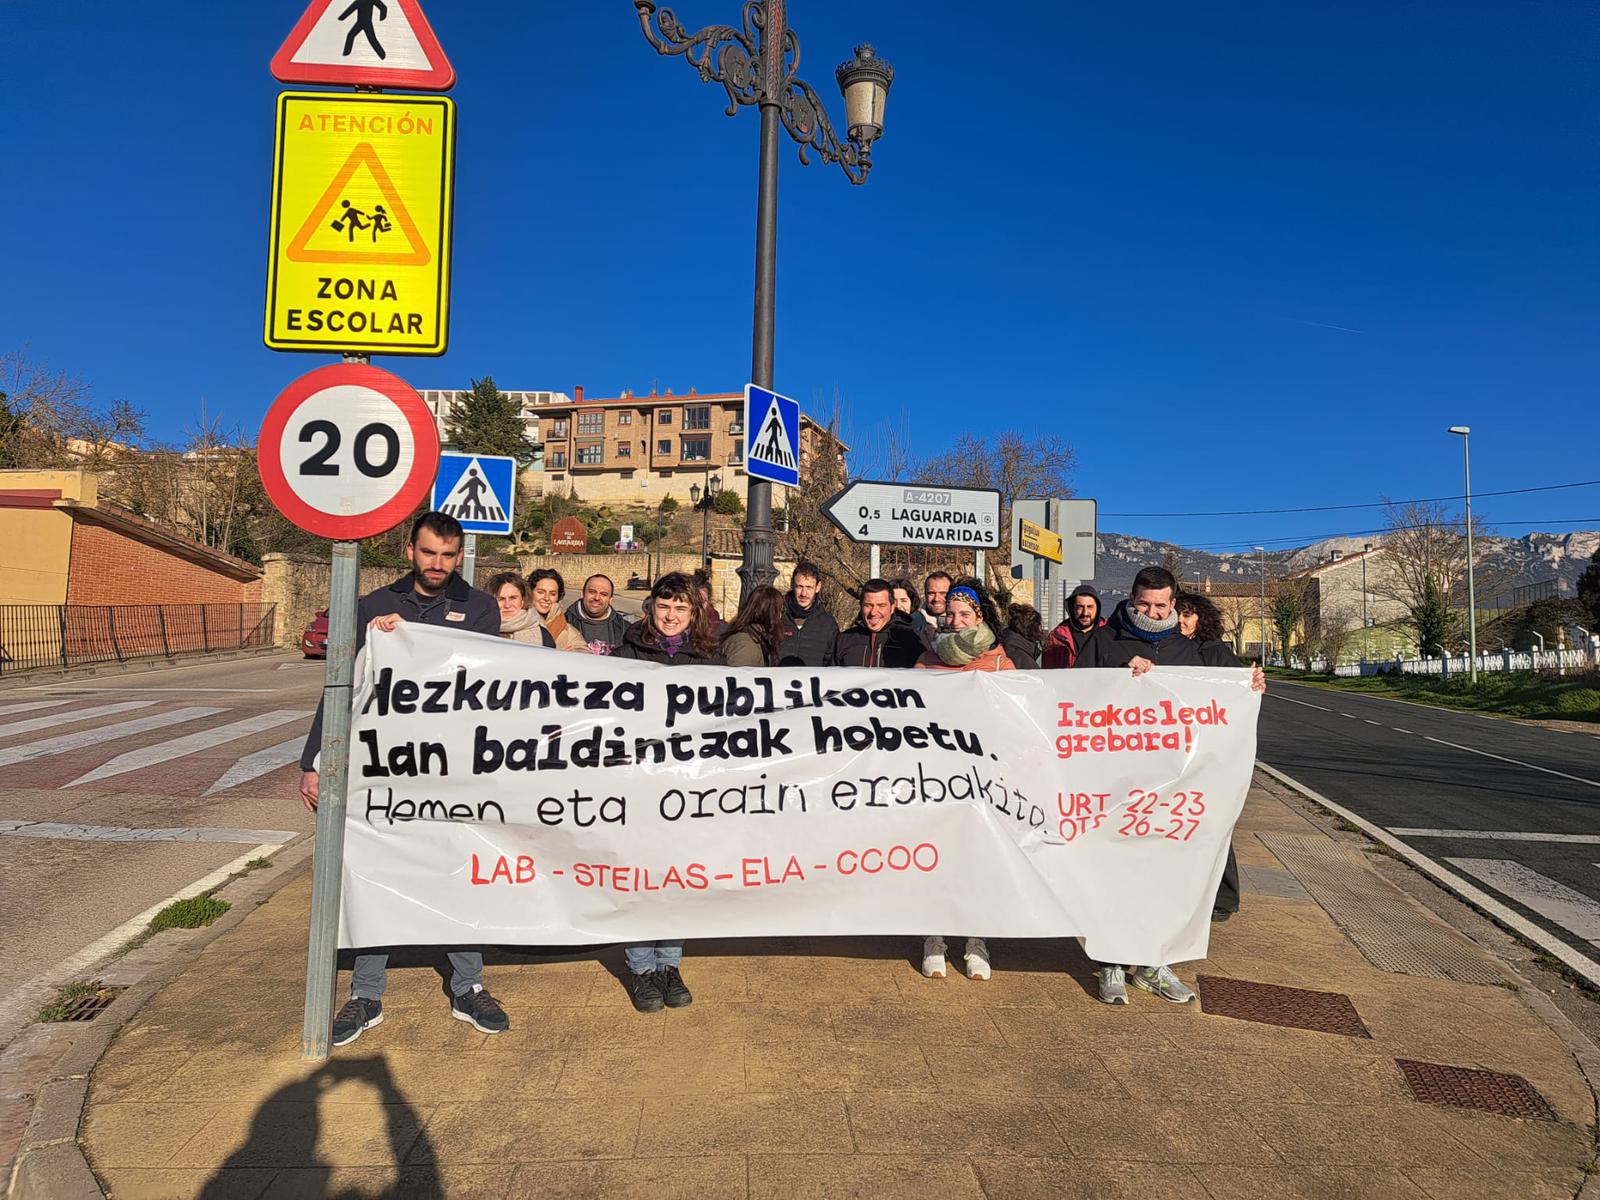 ATENCIÓN
ZONA
ESCOLAR
20
A-4207
0,5 LAGUARDIA
4 NAVARIDAS
LAGUARDIA
Hezkuntza publikoan
lan baldintzak hobetu.
Hemen eta orain erabakita.
LAB - STEILAS - ELA - CCOO
Irakasleak
grebara!
URT 22-23
OTS 26-27